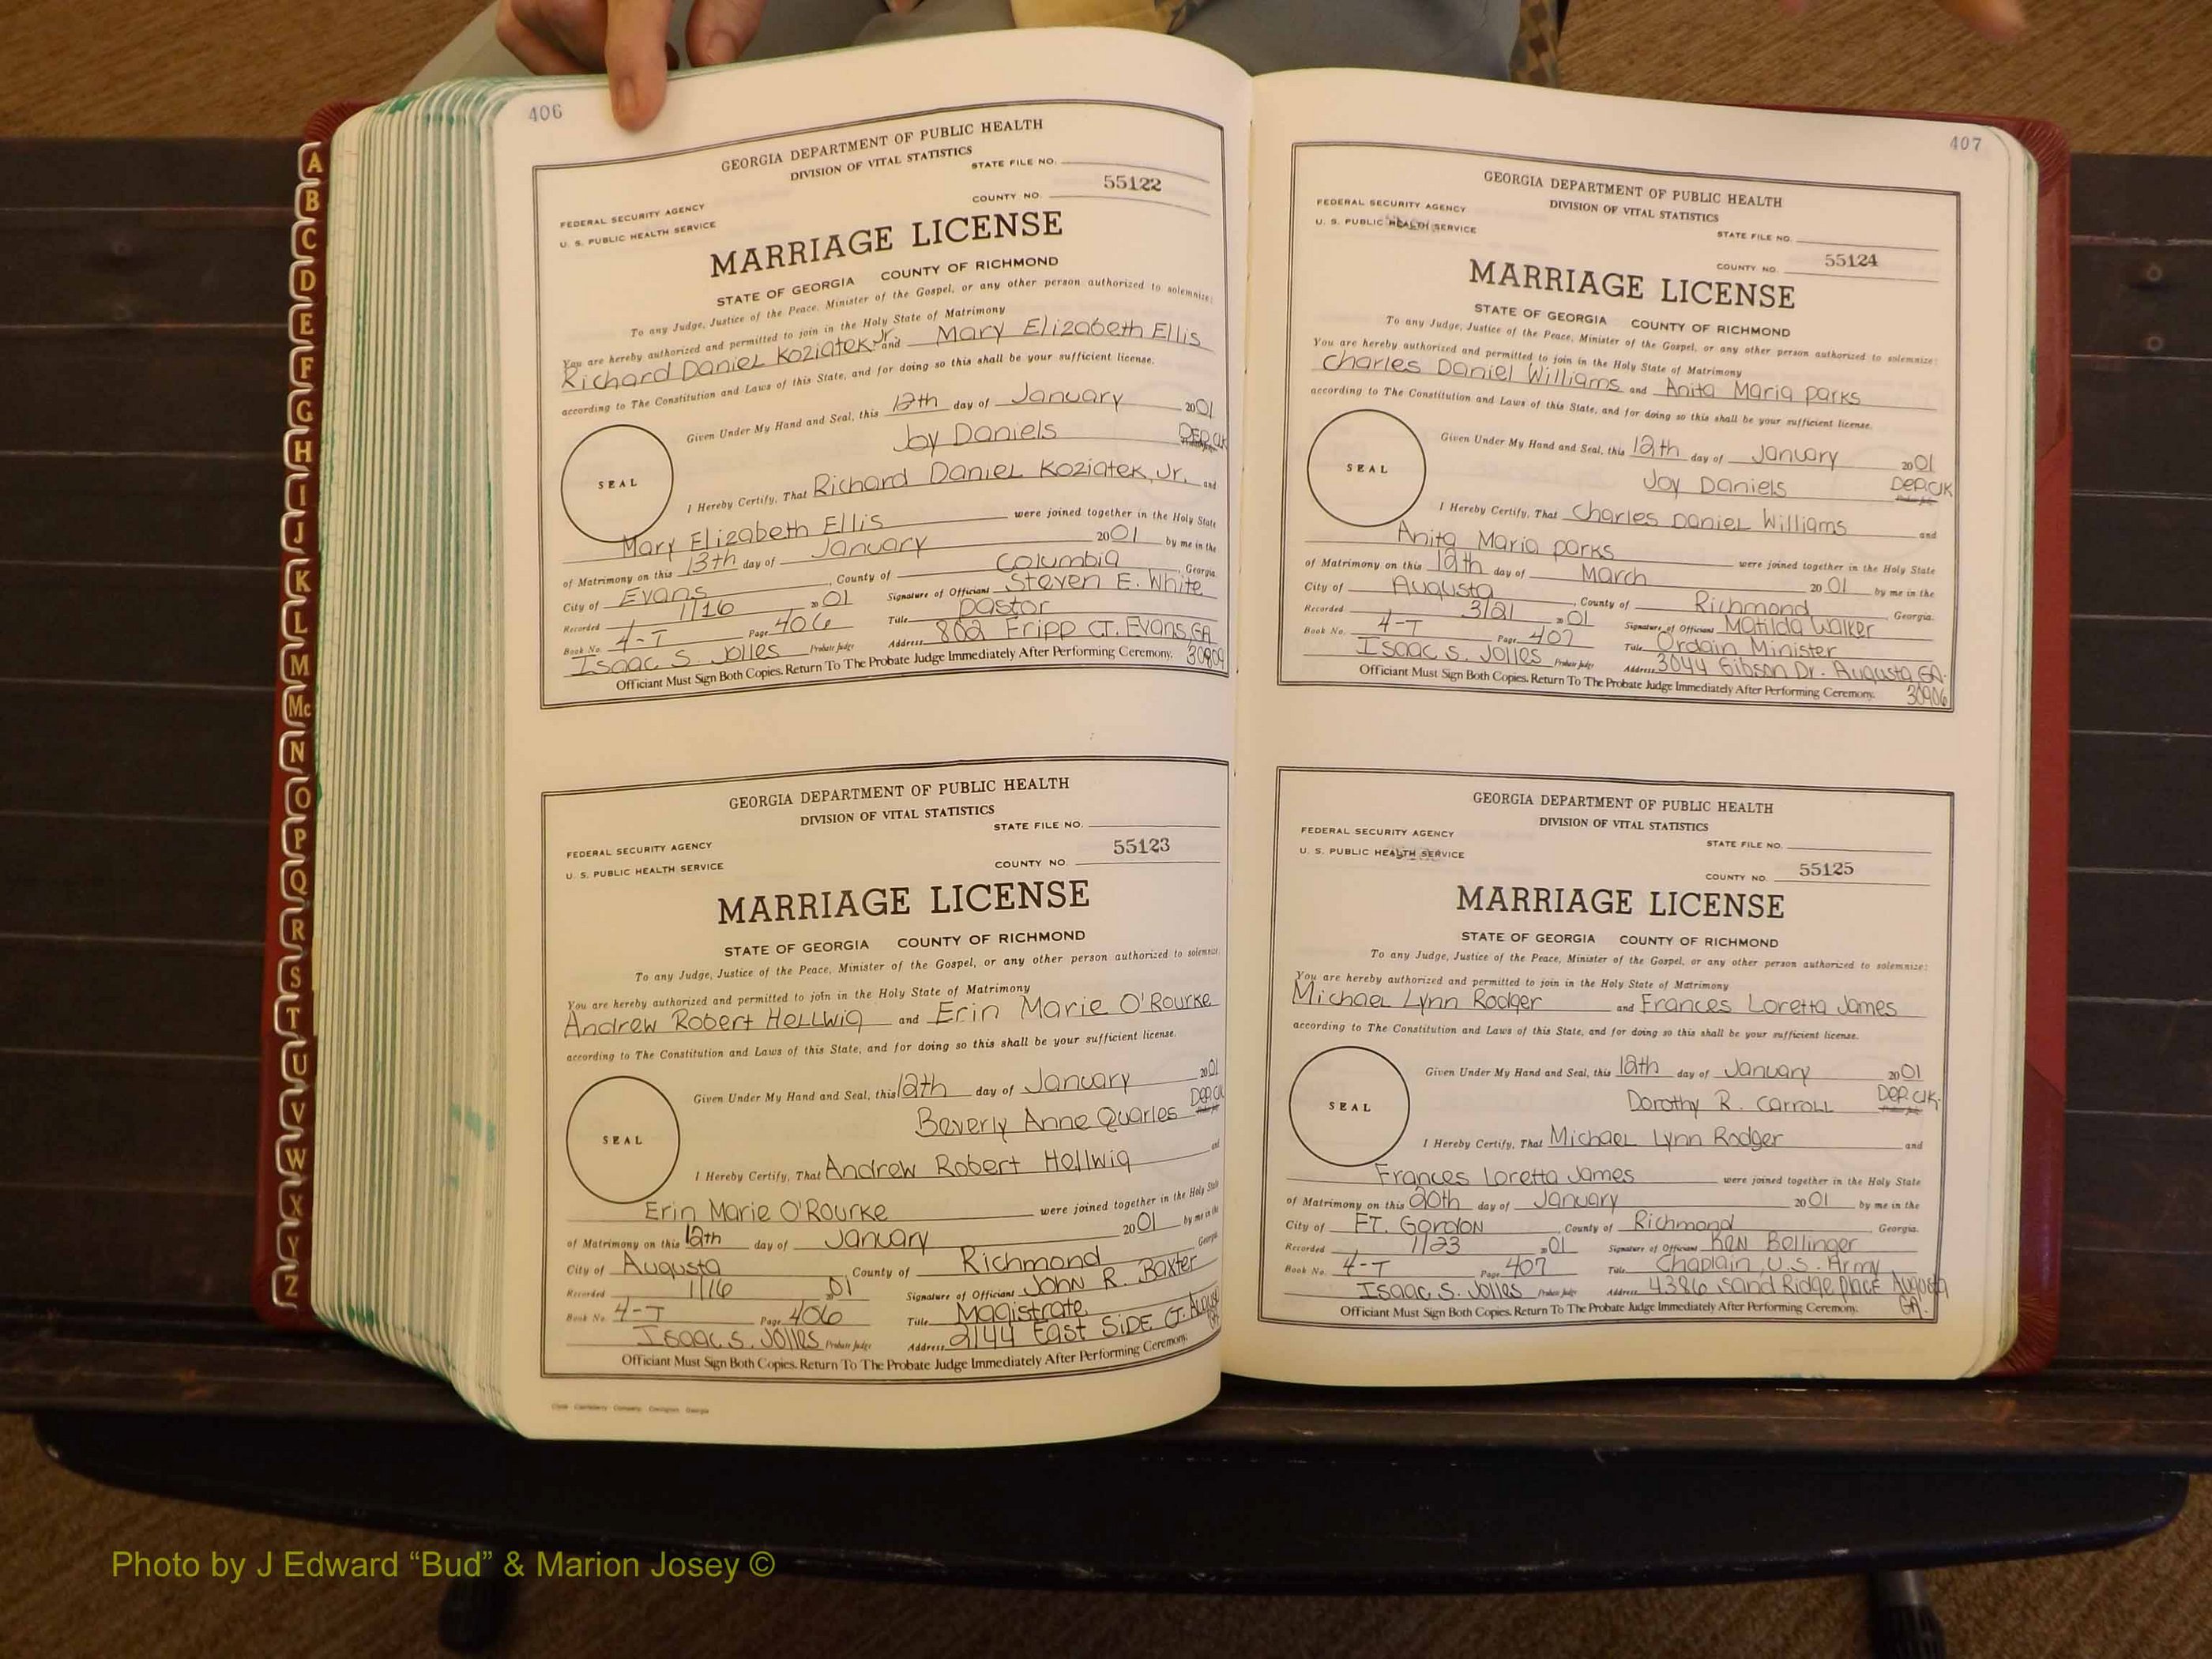 406
GEORGIA DEPARTMENT OF PUBLIC HEALTH
DIVISION OF VITAL STATISTICS
STATE FILE NO.
55122
FEDERAL SECURITY AGENCY
COUNTY NO.
U. S. PUBLIC HEALTH SERVICE
MARRIAGE LICENSE
STATE OF GEORGIA COUNTY OF RICHMOND
To any Judge, Justice of the Peace, Minister of the Gospel, or any other person authorized to solemnize:
You are hereby authorized and permitted to join in the Holy State of Matrimony
Richard Daniel Koziatek Jr. and Mary Elizabeth Ellis
according to The Constitution and Laws of this State, and for doing so this shall be your sufficient license.
Given Under My Hand and Seal, this 12th day of January 2001
Joy Daniels DEP. CLK
SEAL
I Hereby Certify, That Richard Daniel Koziatek, Jr. and
Mary Elizabeth Ellis were joined together in the Holy State
of Matrimony on this 13th day of January 2001 by me in the
City of Evans, County of Columbia, Georgia.
Recorded 1/16 2001 Signature of Officiant Steven E. White
Book No. 4-T Page 406 Title Pastor
Isaac S. Jolles Probate Judge Address 802 Fripp CT. Evans, GA
30809
Officiant Must Sign Both Copies. Return To The Probate Judge Immediately After Performing Ceremony.
GEORGIA DEPARTMENT OF PUBLIC HEALTH
DIVISION OF VITAL STATISTICS
STATE FILE NO.
FEDERAL SECURITY AGENCY
55123
U. S. PUBLIC HEALTH SERVICE
COUNTY NO.
MARRIAGE LICENSE
STATE OF GEORGIA COUNTY OF RICHMOND
To any Judge, Justice of the Peace, Minister of the Gospel, or any other person authorized to solemnize:
You are hereby authorized and permitted to join in the Holy State of Matrimony
Andrew Robert Hellwig and Erin Marie O'Rourke
according to The Constitution and Laws of this State, and for doing so this shall be your sufficient license.
Given Under My Hand and Seal, this 12th day of January 2001
Beverly Anne Quarles DEP. CLK
SEAL
I Hereby Certify, That Andrew Robert Hellwig and
Erin Marie O'Rourke were joined together in the Holy State
of Matrimony on this 12th day of January 2001 by me in the
City of Augusta County of Richmond Georgia
Recorded 1/16 2001 Signature of Officiant John R. Baxter
Book No. 4-T Page 406 Title Magistrate
Isaac S. Jolles Probate Judge Address 2144 East Side CT. Augusta GA
Officiant Must Sign Both Copies. Return To The Probate Judge Immediately After Performing Ceremony.
407
GEORGIA DEPARTMENT OF PUBLIC HEALTH
DIVISION OF VITAL STATISTICS
FEDERAL SECURITY AGENCY
U. S. PUBLIC HEALTH SERVICE
STATE FILE NO.
COUNTY NO. 55124
MARRIAGE LICENSE
STATE OF GEORGIA COUNTY OF RICHMOND
To any Judge, Justice of the Peace, Minister of the Gospel, or any other person authorized to solemnize:
You are hereby authorized and permitted to join in the Holy State of Matrimony
Charles Daniel Williams and Anita Maria Parks
according to The Constitution and Laws of this State, and for doing so this shall be your sufficient license.
Given Under My Hand and Seal, this 12th day of January 2001
Joy Daniels Dep. Clk
SEAL
I Hereby Certify, That Charles Daniel Williams and
Anita Maria Parks were joined together in the Holy State
of Matrimony on this day of March 2001 by me in the
City of Augusta, County of Richmond Georgia.
Recorded 3/21 2001 Signature of Officiant Matilda Walker
Book No. 4-T Page 407 Title Ordain Minister
Isaac S. Jolles Probate Judge Address 3044 Gibson Dr. Augusta GA.
30906
Officiant Must Sign Both Copies. Return To The Probate Judge Immediately After Performing Ceremony.
GEORGIA DEPARTMENT OF PUBLIC HEALTH
DIVISION OF VITAL STATISTICS
FEDERAL SECURITY AGENCY
STATE FILE NO.
U. S. PUBLIC HEALTH SERVICE
COUNTY NO. 55125
MARRIAGE LICENSE
STATE OF GEORGIA COUNTY OF RICHMOND
To any Judge, Justice of the Peace, Minister of the Gospel, or any other person authorized to solemnize:
You are hereby authorized and permitted to join in the Holy State of Matrimony
Michael Lynn Rodger and Frances Loretta James
according to The Constitution and Laws of this State, and for doing so this shall be your sufficient license.
Given Under My Hand and Seal, this 12th day of January 2001
Dorothy R. Carroll Dep. Clk.
SEAL
I Hereby Certify, That Michael Lynn Rodger and
Frances Loretta James were joined together in the Holy State
of Matrimony on this 20th day of January 2001 by me in the
City of FT. Gordon, County of Richmond Georgia.
Recorded 1/23 2001 Signature of Officiant Ken Bellinger
Book No. 4-T Page 407 Title Chaplain, U.S. Army
Isaac S. Jolles Probate Judge Address 4386 Sand Ridge Place Augusta
GA.
Officiant Must Sign Both Copies. Return To The Probate Judge Immediately After Performing Ceremony.
A
B
C
D
E
F
G
H
I
J
K
L
M
Mc
N
O
P
Q
R
S
T
U
V
W
X
Y
Z
Photo by J Edward “Bud” & Marion Josey ©